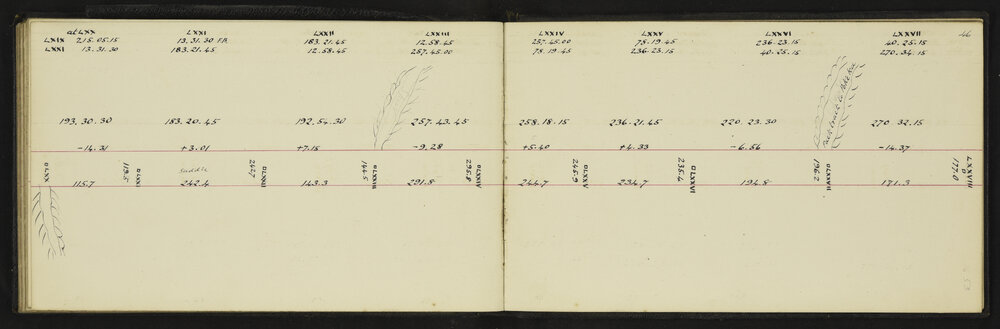 at LXX LXXI LXXII LXXIII LXXIV LXXV LXXVI LXXVII 46
LXIX 215.05.15 13.31.30 F.B. 183.21.45 12.58.45 257.45.00 78.19.45 236.23.15 40.25.15
LXXI 13.31.30 183.21.45 12.58.45 257.45.00 78.19.45 236.23.15 40.25.15 270.34.15
Pack track to
193.30.30 183.20.45 192.54.30 257.43.45 258.18.15 236.21.45 220.23.30 270.32.15
-14.31 +3.01 +7.15 -9.28 +5.40 +4.33 -6.56 -14.37
LXX 119.5 LXXI 247 LXXII 144.5 LXXIII 295.8 LXXIV 245.9 LXXV 235.4 LXXVI 196.2 LXXVII 177.0 LXXVIII
saddle
115.7 242.4 143.3 291.8 244.7 234.7 194.8 171.3